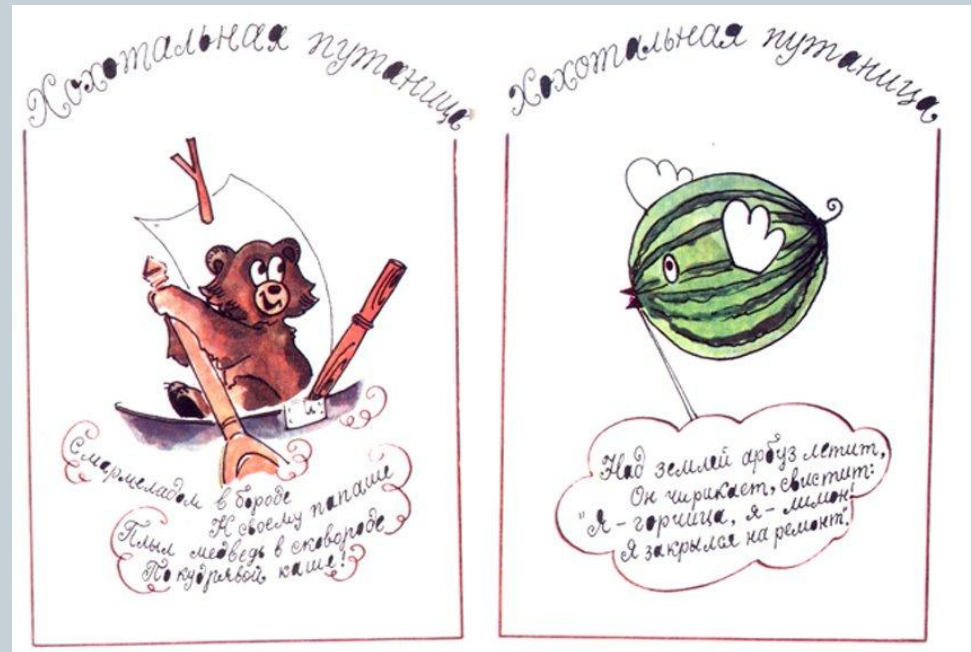 Хохотальная путаница
С мармеладом в бороде
К своему папаше
Плыл медведь в сковороде
По кудрявой каше!
Хохотальная путаница
Над землёй арбуз летит,
Он чирикает, свистит:
"Я - горчица, я - лимон!
Я закрылся на ремонт".